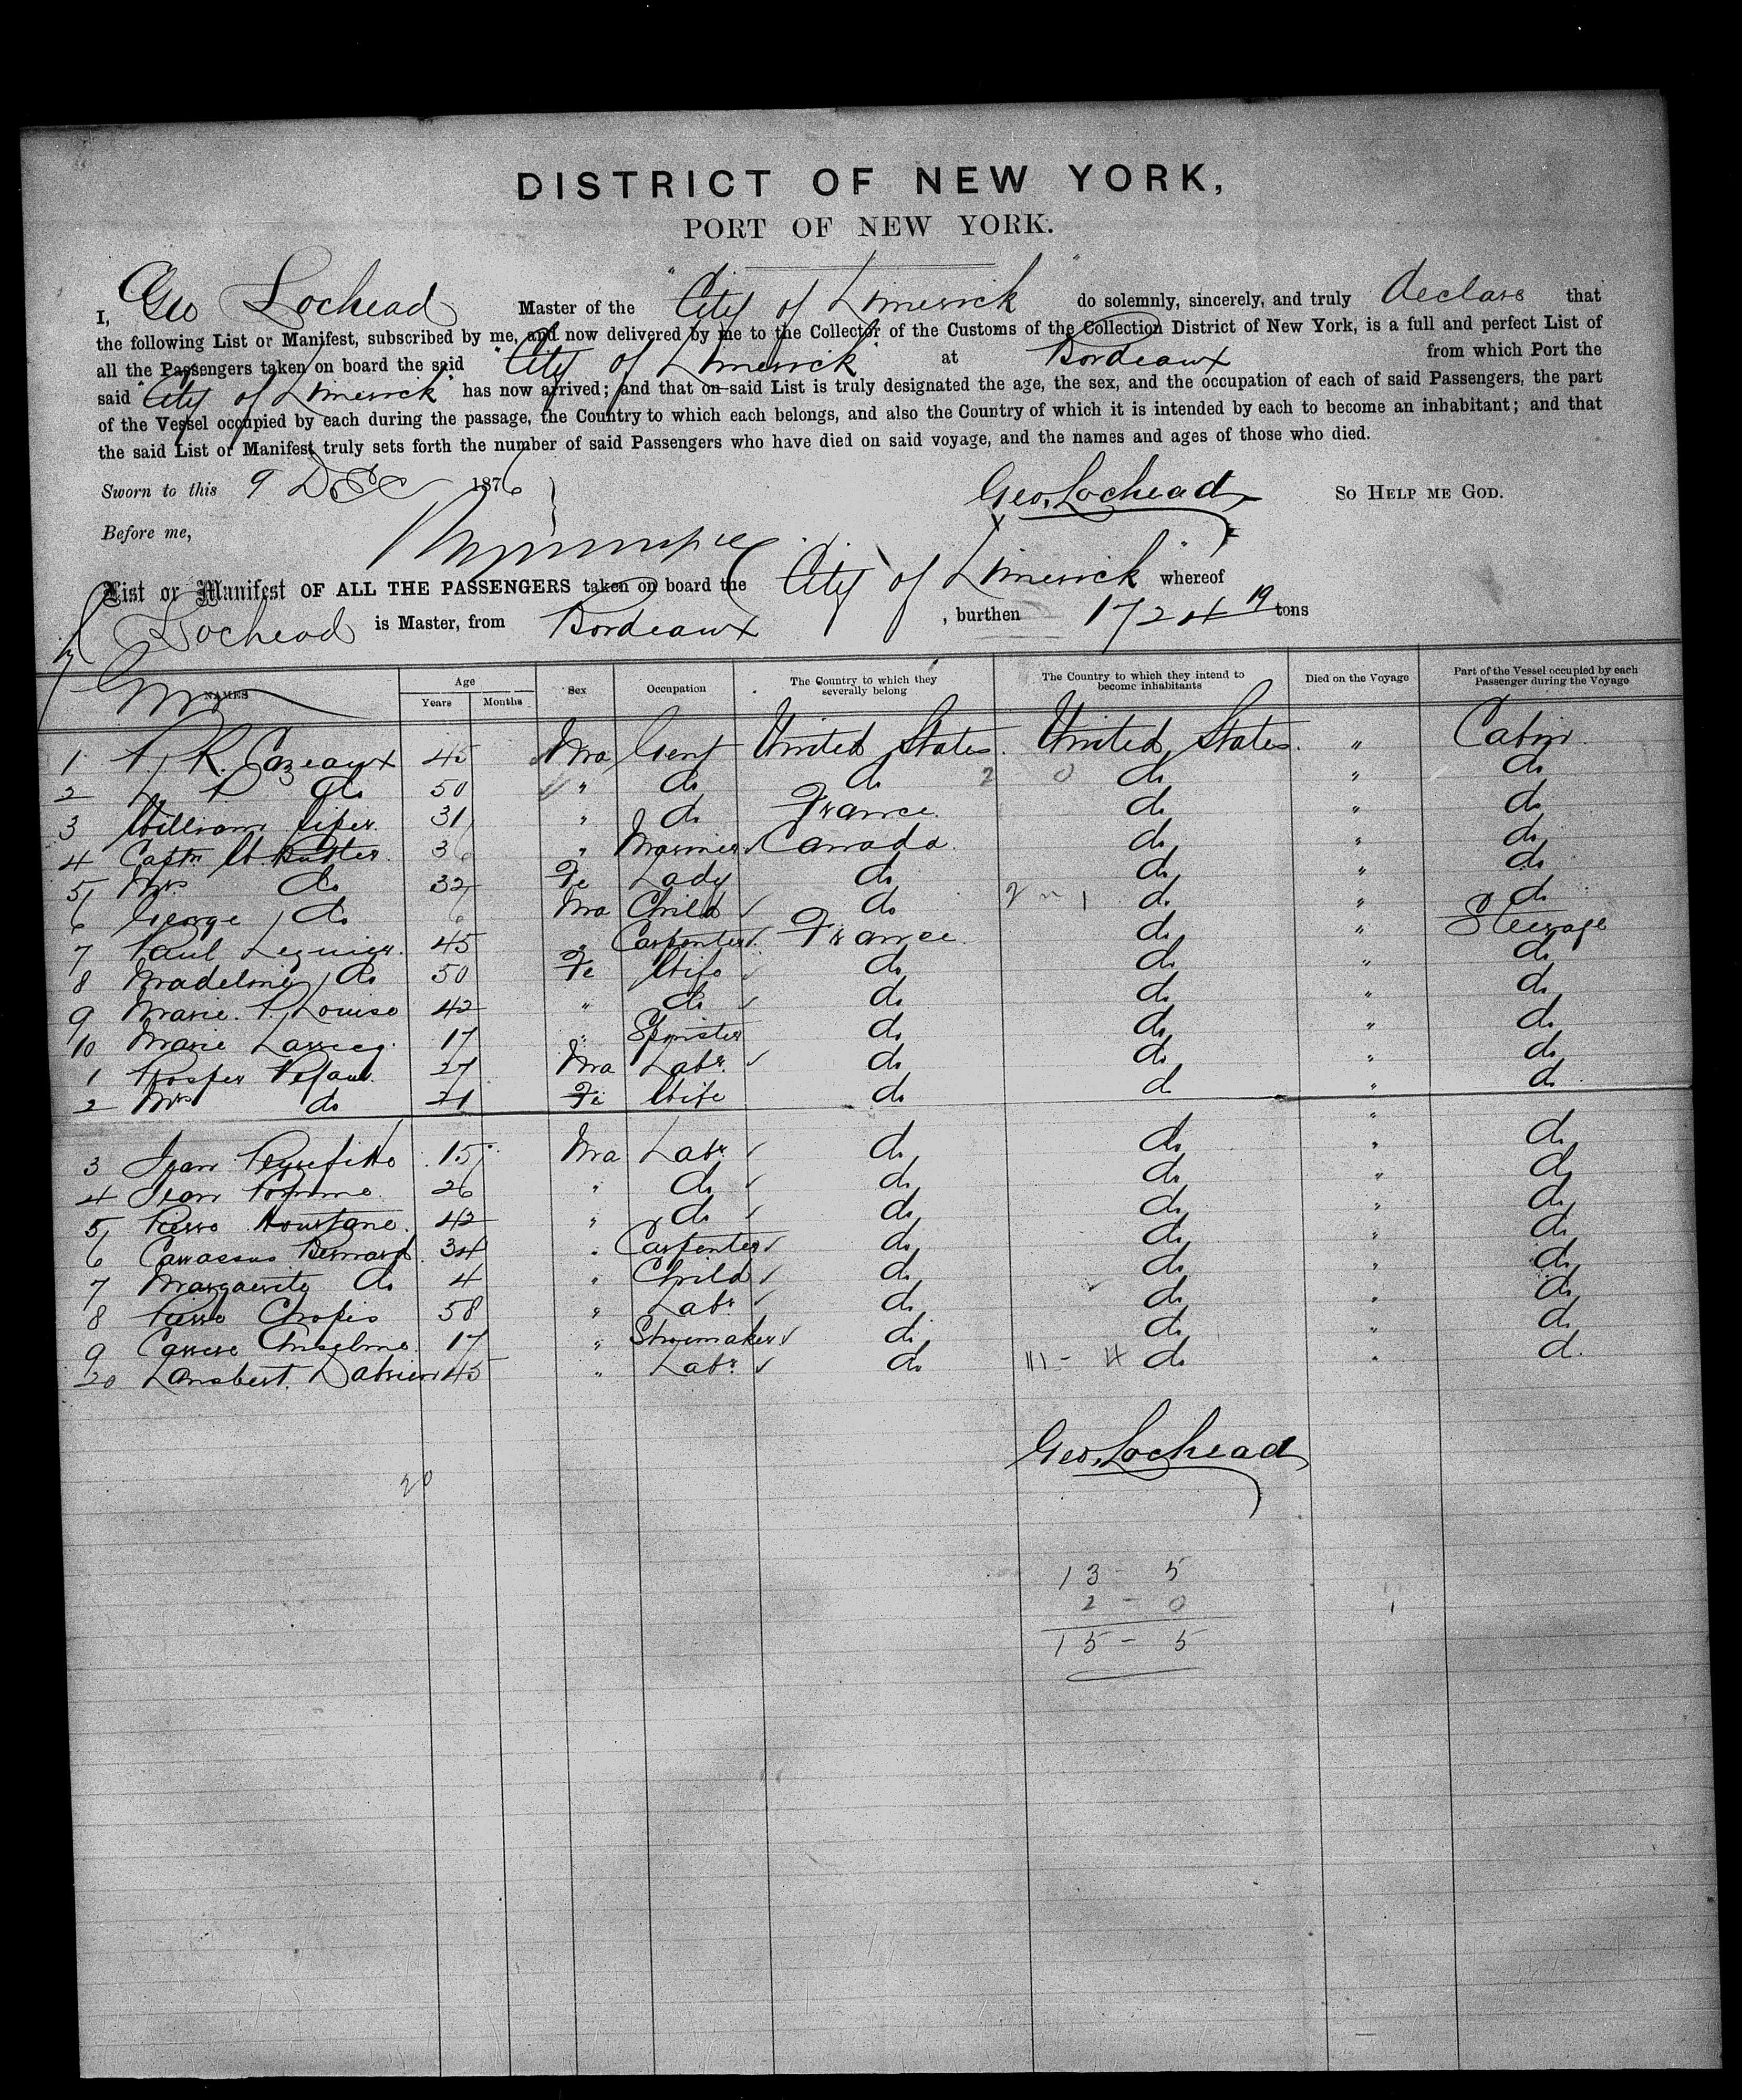 DISTRICT OF NEW YORK,
PORT OF NEW YORK.
I, Geo Lochead Master of the "City of Limerick" do solemnly, sincerely, and truly declare that
the following List or Manifest, subscribed by me, and now delivered by me to the Collector of the Customs of the Collection District of New York, is a full and perfect List of
all the Passengers taken on board the said "City of Limerick" at Bordeaux from which Port the
said "City of Limerick" has now arrived; and that on said List is truly designated the age, the sex, and the occupation of each of said Passengers, the part
of the Vessel occupied by each during the passage, the Country to which each belongs, and also the Country of which it is intended by each to become an inhabitant; and that
the said List or Manifest truly sets forth the number of said Passengers who have died on said voyage, and the names and ages of those who died.
Sworn to this 9 Dec 1876 Geo. Lochead So HELP ME GOD.
Before me,
List or Manifest OF ALL THE PASSENGERS taken on board the City of Limerick" whereof
Lochead is Master, from Bordeaux , burthen 1724 19 tons
NAMES Age Years Months Sex Occupation The Country to which they severally belong The Country to which they intend to become inhabitants Died on the Voyage Part of the Vessel occupied by each Passenger during the Voyage
1 R. Cazeaux 45 Ma Gent United States United States " Cabin
2 do 50 " do do 2 0 do " do
3 William 31 " do France do " do
4 Captn W. Butter 36 " Mariner Canada do " do
5 Mrs do 32 Fe Lady do do " do
6 George do 6 Ma Child do 2 - 1 do " do
7 Paul Lequier 45 " Carpenter France do " Steerage
8 Madeline do 50 Fe Wife do do " do
9 Marie P. Louise 42 " do do do " do
10 Marie 17 " Spinster do do " do
1 Prosper 27 Ma Labr do do " do
2 Mrs do 21 Fe Wife do d " do
3 Jean 15 Ma Labr do do " do
4 Jean 26 " do do do " do
5 Pierre 42 " do do do " do
6 Carrassus Bernard 34 " Carpenter do do " do
7 Marguerite do 4 " Child do do " do
8 Pierre Chopis 58 " Labr do do " do
9 Carrere Anselme 17 " Shoemaker do do " do
20 Lambert 45 " Labr do 11 - 4 do " do
Geo. Lochead
20
13 - 5
2 - 0
15 - 5